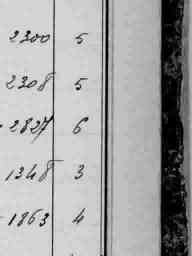 2300 5
2308 5
2827 6
1348 3
1863 4